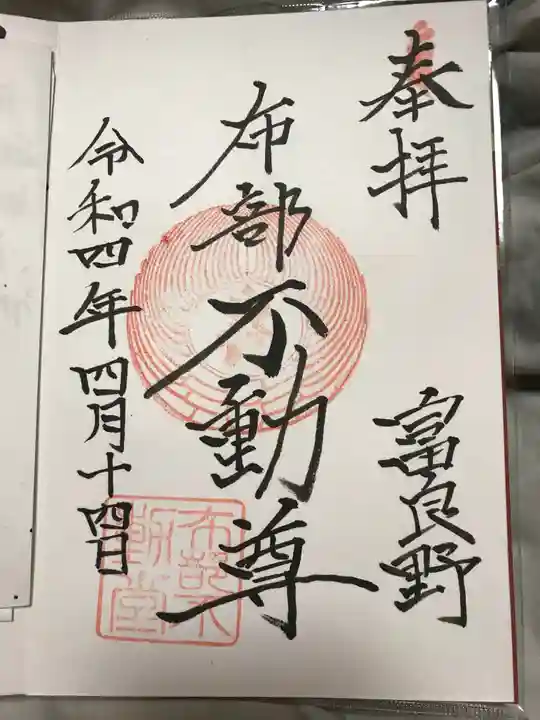 奉拝
富良野
布部不動尊
令和四年四月十四日
布部不
動堂